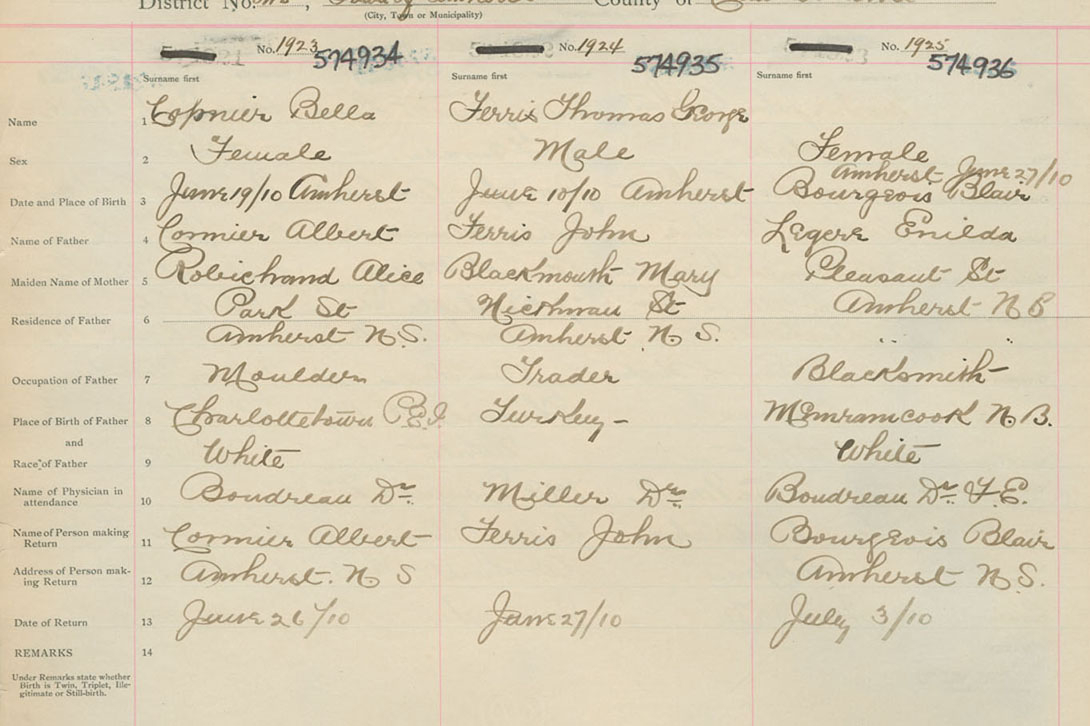 District No. County of
(City, Town or Municipality)
No. 1923 574934 No. 1924 574935 No. 1925 574936
Surname first Surname first Surname first
Name 1 Cormier Bella Ferris Thomas George
Sex 2 Female Male Female
Amherst June 27/10
Date and Place of Birth 3 June 19/10 Amherst June 10/10 Amherst Bourgeois Blair
Name of Father 4 Cormier Albert Ferris John Legere Enilda
Maiden Name of Mother 5 Robichaud Alice Blackmouth Mary Pleasant St
Park St St Amherst N B
Residence of Father 6
Amherst N.S. Amherst N. S. " "
Occupation of Father 7 Moulder Trader Blacksmith
Place of Birth of Father 8 Charlottetown P.E.I Turkey - Memramcook N.B.
and
Race of Father 9 White White
Name of Physician in
attendance 10 Boudreau Dr. Miller Dr. Boudreau Dr. F.E.
Name of Person making
Return 11 Cormier Albert Ferris John Bourgeois Blair
Address of Person mak-
ing Return 12 Amherst. N. S Amherst N.S.
Date of Return 13 June 26/10 June 27/10 July 3/10
REMARKS 14
Under Remarks state whether
Birth is Twin, Triplet, Ille-
gitimate or Still-birth.